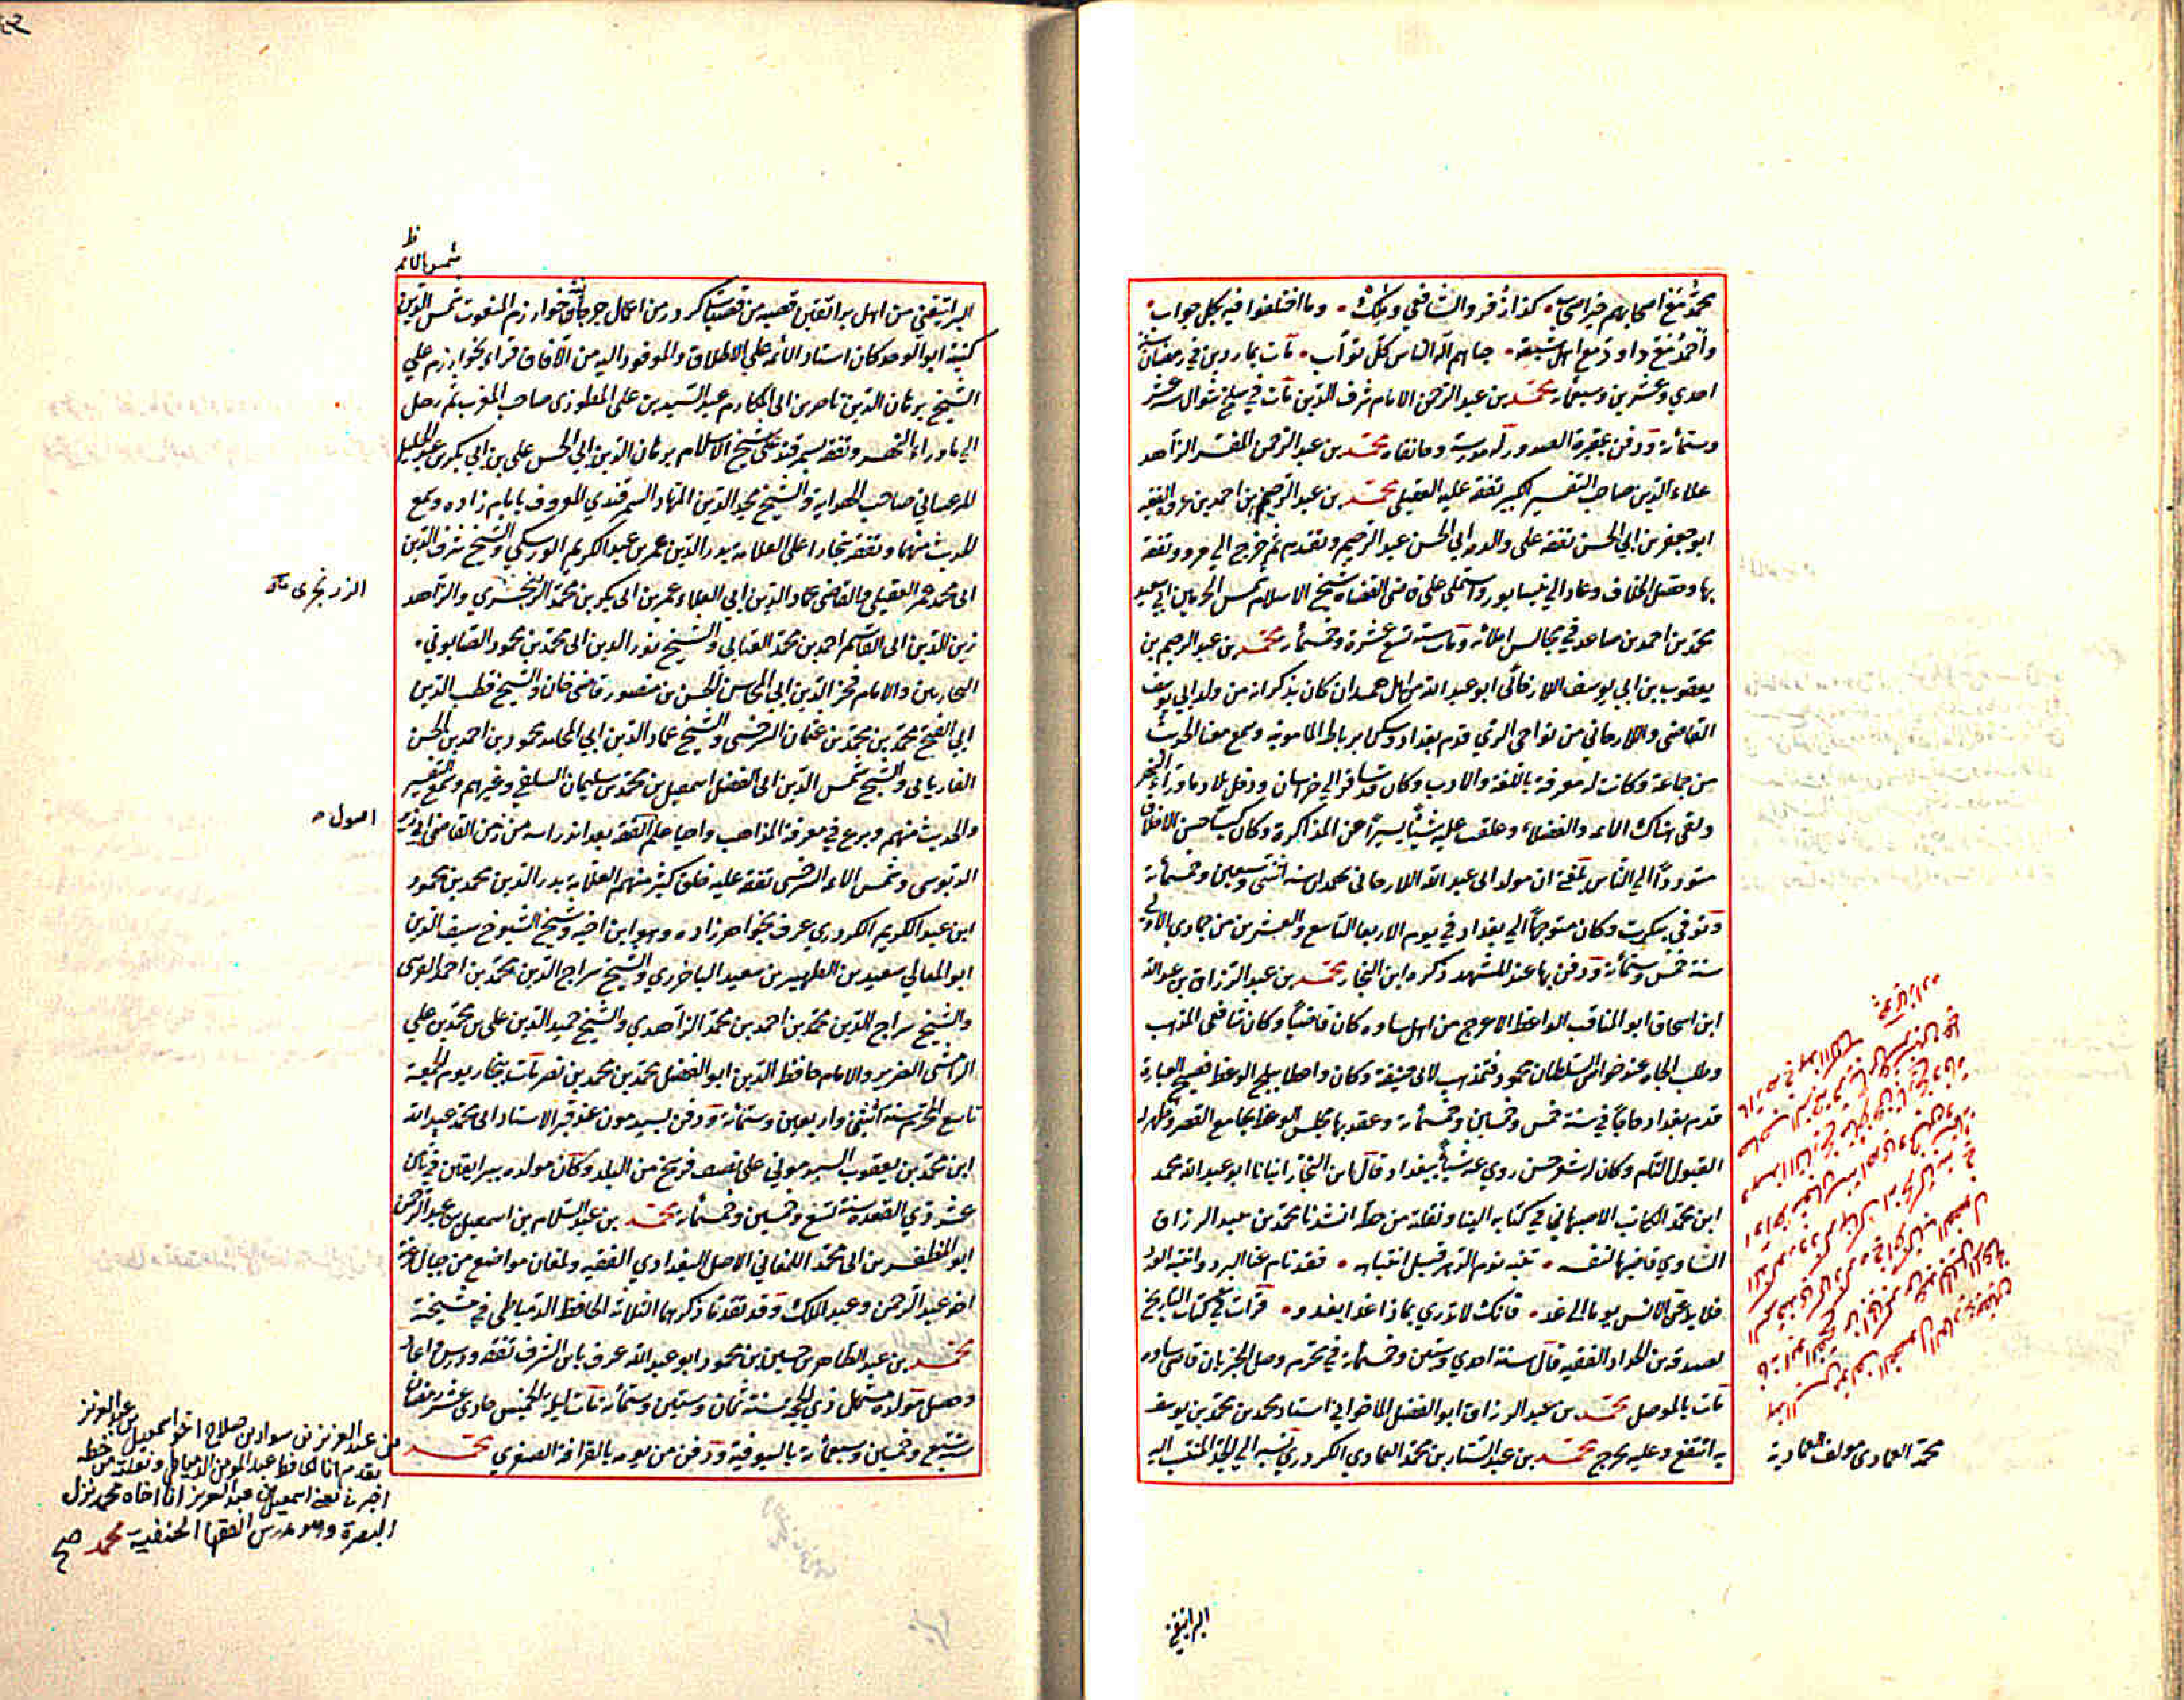 محمد مع اصحابهم خير اصحاب كذا زفر والشافعي ومالك وما اختلفوا فيه بكل جواب
واحمد مع داود مع اهل شيعة حباهم اله الناس كل ثواب مات بماردين في رمضان سنة
احدي وعشرين وسبعمائة محمد بن عبد الرحمن الامام شرف الدين مات في سلخ شوال سنة عشر
وستمائة ودفن بمقبرة الصدور له مدرسة وخانقاه محمد بن عبد الرحمن المفسر الزاهد
علاء الدين صاحب التفسير الكبير تفقه عليه العقيلي محمد بن عبد الرحيم بن احمد بن عروة الفقيه
ابو جعفر بن ابي الحسن تفقه على والده ابي الحسن عبد الرحيم وتقدم ثم خرج الي مرو وتفقه
بها وحصل الخلاف وعاد الي نيسابور واستملى على قاضي القضاة شيخ الاسلام شمس الحرمين ابي سعيد
محمد بن احمد بن صاعد في مجالس املائه ومات سنة تسع عشرة وخمسمائة محمد بن عبد الرحيم بن
يعقوب بن ابي يوسف اللارجاني ابو عبد الله من اهل همدان كان يذكر انه من ولد ابي يوسف
القاضي واللارجاني من نواحي الري قدم بغداد وسكن برباط المامونية وسمع معنا الحديث
من جماعة وكانت له معرفة باللغة والادب وكان قد سافر الي خراسان ودخل بلاد ما وراء النهر
ولقي هناك الائمة والفضلاء وعلقت عليه شيئا يسيرا عن المذاكرة وكان كيسا حسن الاخلاق
متوددا الي الناس بلغني ان مولد ابي عبد الله اللارجاني بهمدان سنة اثنتي وسبعين وخمسمائة
وتوفي بتكريت وكان متوجها الي بغداد في يوم الاربعا التاسع والعشرين من جمادي الاولي
سنة خمس وستمائة ودفن بها عند المشهد ذكره ابن النجار محمد بن عبد الرزاق بن عبد الله
ابن اسحاق ابو المناقب الواعظ الاعرج من اهل ساوه كان قاضيا وكان شافعي المذهب
وطلب الجاه عند خواص السلطان محمود فتمذهب لابي حنيفة وكان واعظا مليح الوعظ فصيح العبارة
قدم بغداد حاجا في سنة خمس وخمسين وخمسمائة وعقد بها مجلس الوعظ بجامع القصر وظهر له
القبول التام وكان له شعر حسن روي عنه شيئا ببغداد قال ابن النجار انبانا ابو عبد الله محمد
ابن محمد الكاتب الاصبهاني في كتابه الينا ونقلته من خطه انشدنا محمد بن عبد الرزاق
الساوي قاضيها لنفسه تنبه نوم الدهر قبل انتباهه فقد نام عنا البرد وانتبه الورد
فلا يدعن الانس يوما الى غد فانك لا تدري بماذا غدا يغدو قرات في كتاب التاريخ
لصدقة بن الحداد الفقيه قال سنة احدي وستين وخمسمائة في محرم وصل الخبر بان قاضي ساوه
مات بالموصل محمد بن عبد الرزاق ابو الفضل الماخواني استاد محمد بن محمد بن يوسف
به انتفع وعليه تخرج محمد بن عبد الستار بن محمد العمادي الكردري نسبه الي الجد المنتسب اليه
محمد العمادي مولف العمادية
البراتقني
شمس الائمة ظ
البراتقني من اهل براتقين قصبة من قصبات كردر من اعمال جرجانية خوارزم المنعوت شمس الدين
كنيته ابو الوجد كان استاد الائمة علي الاطلاق والموفود اليه من الآفاق قراء بخوارزم علي
الشيخ برهان الدين ناصر بن ابي المكارم عبد السيد بن علي المطرزي صاحب المغرب ثم رحل
الي ما وراء النهر وتفقه بسمرقند على شيخ الاسلام برهان الدين ابي الحسن علي بن ابي بكر بن عبد الجليل
المرغيناني صاحب الهداية والشيخ مجد الدين المهاد السمرقندي المعروف بامام زاده وسمع
الحديث منهما وتفقه ببخارا على العلامة بدر الدين عمر بن عبد الكريم الورسكي والشيخ شرف الدين
ابي محمد عمر العقيلي والقاضي عماد الدين ابي العلاء عمر بن ابي بكر بن محمد الزمخشري والزاهد
الزرنجري
زين الدين ابي القاسم احمد بن محمد العتابي والشيخ نور الدين ابي محمد بن محمود الصابوني
البخاريين والامام فخر الدين ابي المحاسن الحسن بن منصور قاضي خان والشيخ قطب الدين
ابي الفتح محمد بن محمد بن عثمان السرخسي والشيخ عماد الدين ابي المحامد محمود بن احمد بن الحسن
الفاريابي والشيخ شمس الدين ابي الفضل اسمعيل بن محمد بن سليمان السلفي وغيرهم وسمع التفسير
والحديث منهم وبرع في معرفة المذاهب واحيا علم الفقه بعد اندراسه من زمن القاضي ابي زيد
اصول
الدبوسي وشمس الائمة السرخسي تفقه عليه خلق كثير منهم العلامة بدر الدين محمد بن محمود
ابن عبد الكريم الكردري عرف بخواهر زاده وهو ابن اخته وشيخ الشيوخ سيف الدين
ابو المعالي سعيد بن المطهر بن سعيد الباخرزي والشيخ سراج الدين محمد بن احمد القرشي
والشيخ سراج الدين محمد بن احمد بن محمد الزاهدي والشيخ حميد الدين علي بن محمد بن علي
الرامشي الضرير والامام حافظ الدين ابو الفضل محمد بن محمد بن نصر مات ببخارا يوم الجمعة
تاسع المحرم سنة اثنين واربعين وستمائة ودفن بسبذمون عند قبر الاستاد ابي محمد عبد الله
ابن محمد بن يعقوب السبذموني علي نصف فرسخ من البلد وكان مولده ببراتقين في ثامن
عشر ذي القعدة سنة تسع وخمسين وخمسمائة محمد بن عبد السلام بن اسمعيل بن عبد الرحمن
ابو المظفر بن ابي محمد اللمغاني الاصل البغدادي الفقيه ولمغان مواضع من جبال غزنة
اخو عبد الرحمن وعبد الملك وقد تقدما ذكرهما الثلاثة الحافظ الدمياطي في مشيخته
محمد بن عبد الظاهر بن حسين بن محمود ابو عبد الله عرف بابن الشرف تفقه ودرس واعاد
وحصل مولده مستهل ذي الحجة سنة ثمان وستين وستمائة مات ليلة الخميس حادي عشر رمضان
سنة سبع وخمسين وسبعمائة بالسيوفية ودفن من يومه بالقرافة الصغري محمد
بن عبد العزيز بن سوار بن صلاح اخو اسمعيل بن عبد العزيز
تقدم انا الحافظ عبد المومن الدمياطي ونقلته من خطه
اخبرني يعني اسمعيل بن عبد العزيز ان اخاه محمد نزل
البصرة وهو مدرس الفقها الحنفية محمد صح